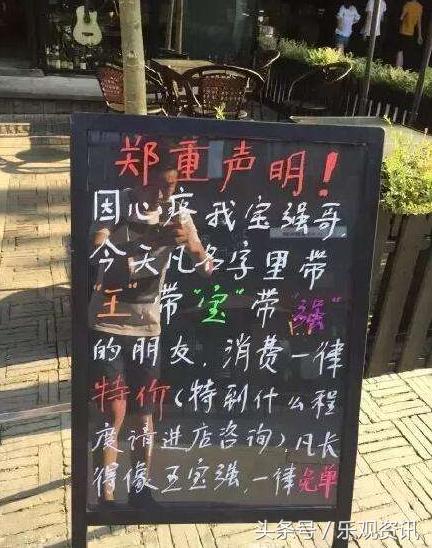 郑重声明！
因心疼我宝强哥
今天凡名字里带
"王"带"宝"带"强"
的朋友，消费一律
特价（特到什么程
度请进店咨询），凡长
得像王宝强，一律免单
头条号／乐观资讯